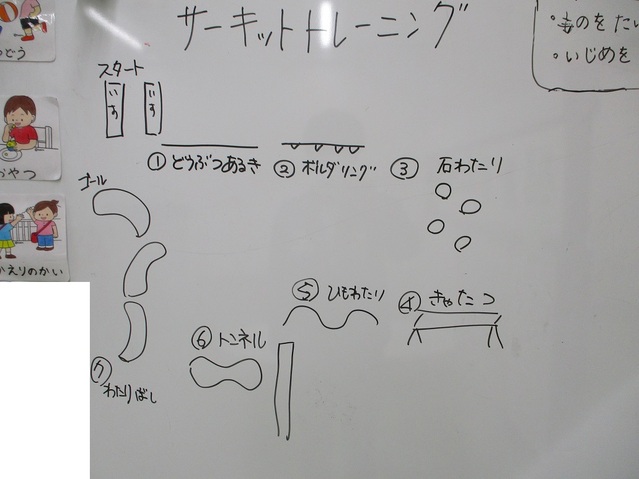 サーキットトレーニング
スタート
いす
いす
①どうぶつあるき
②ボルダリング
③石わたり
④きゃたつ
⑤ひもわたり
⑥トンネル
⑦わたりばし
ゴール
おやつ
かえりのかい
・いじめを